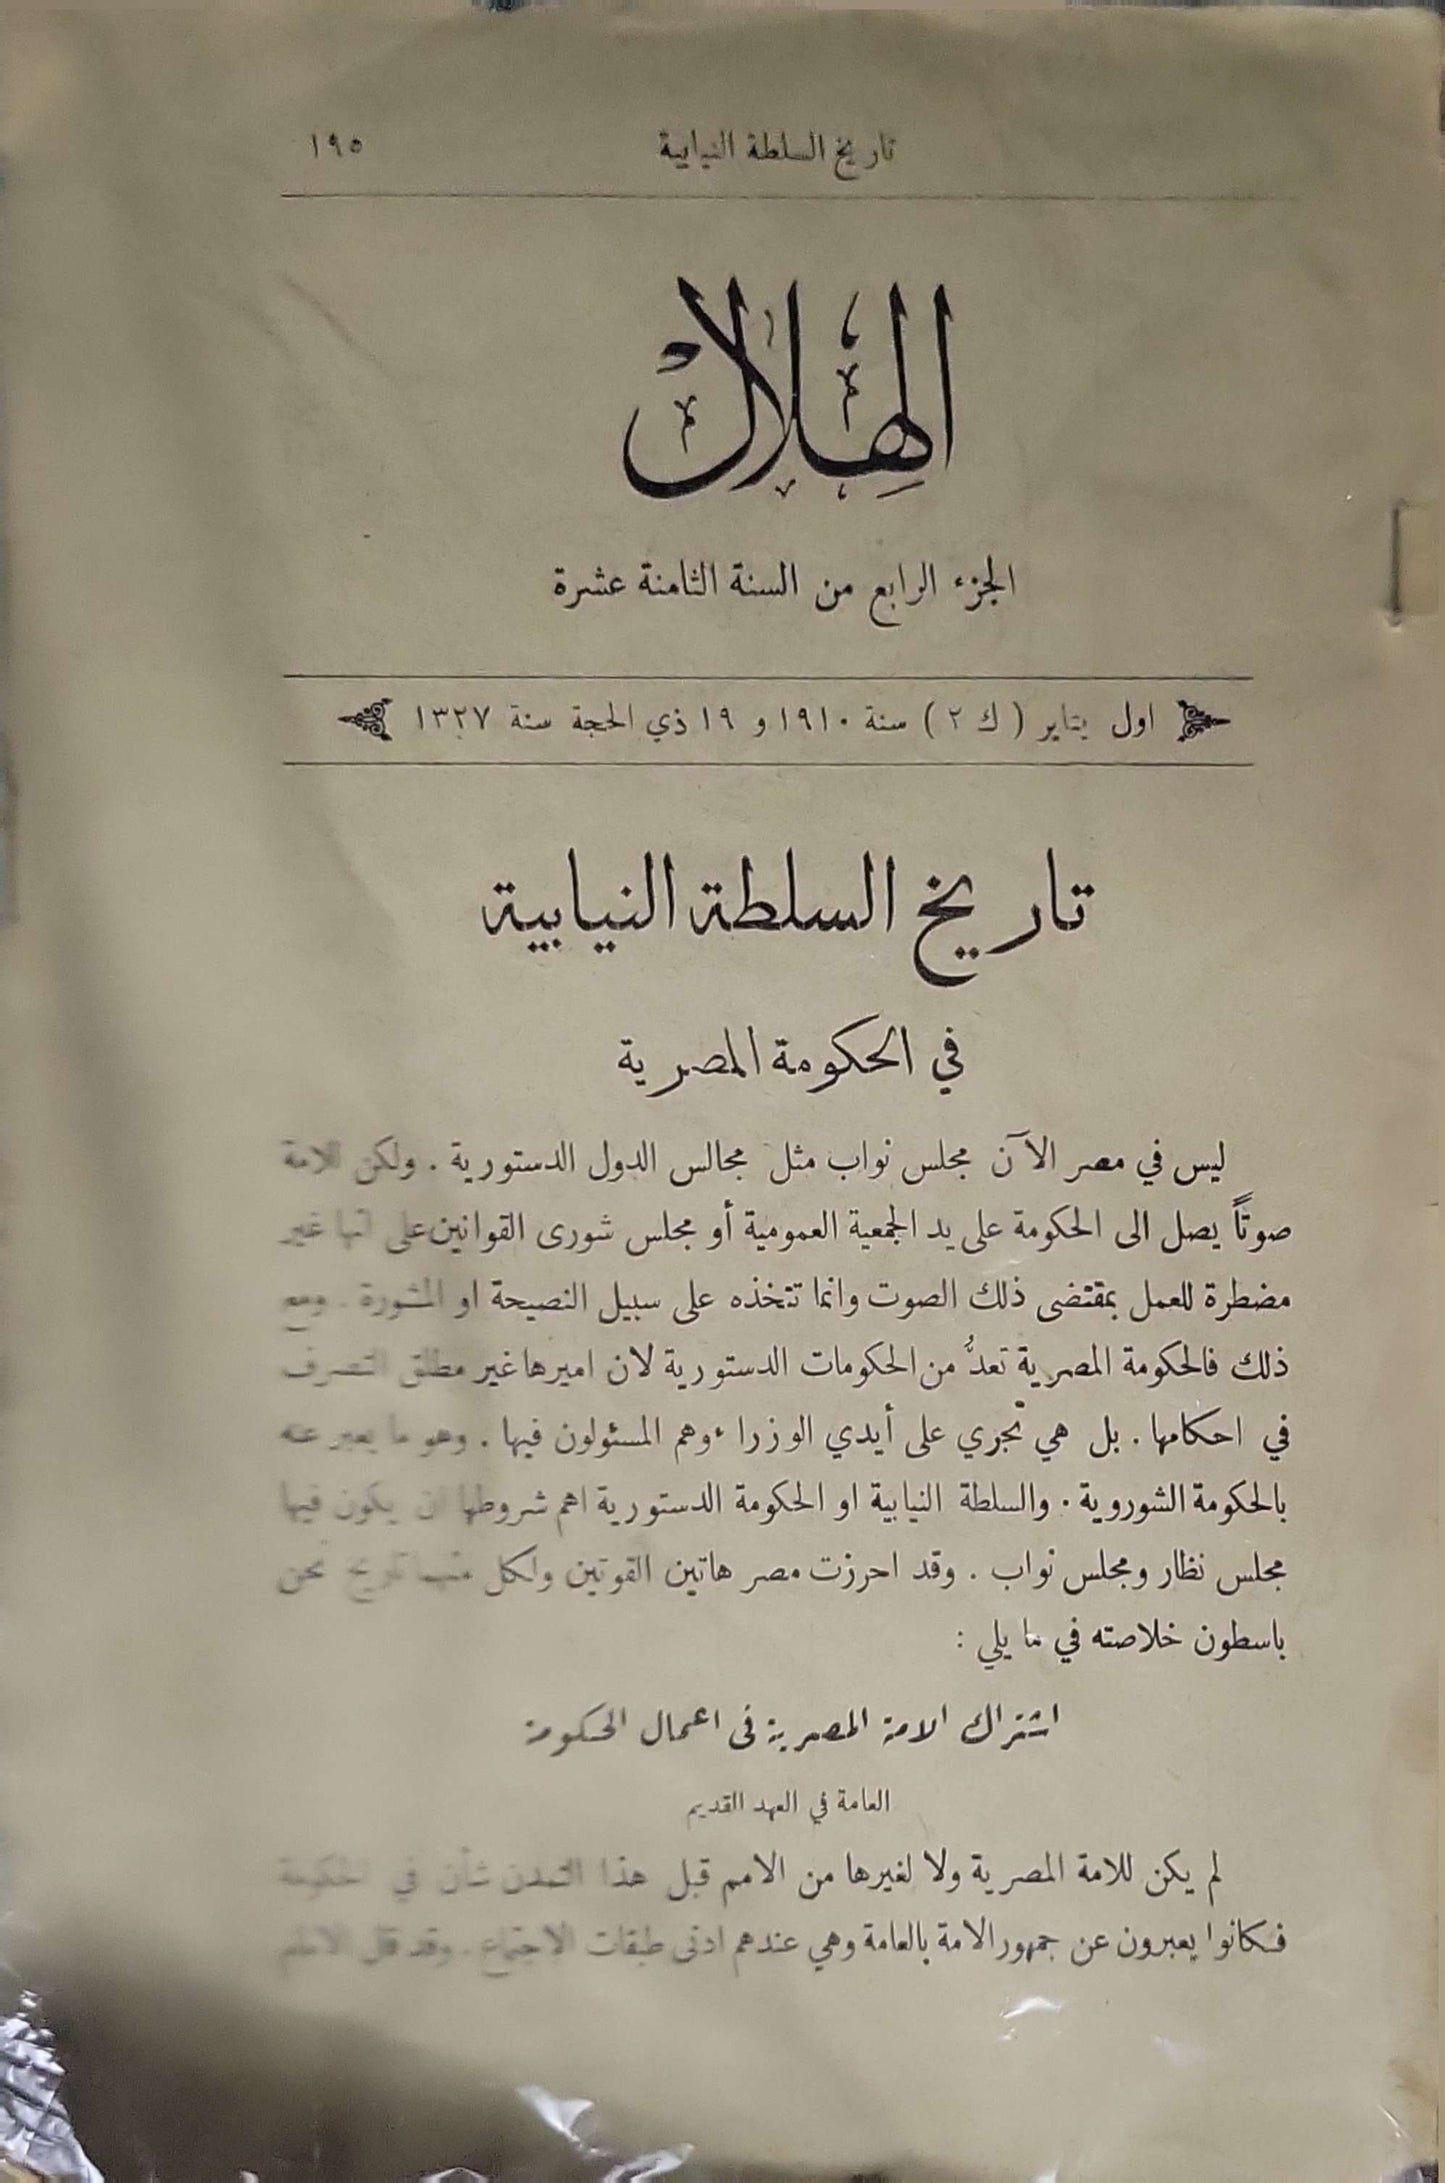 تاريخ السلطة النيابية ١٩٥
الهلال
الجزء الرابع من السنة الثامنة عشرة
اول يناير ( ك ٢ ) سنة ١٩١٠ و ١٩ ذي الحجة سنة ١٣٢٧
تاريخ السلطة النيابية
في الحكومة المصرية
ليس في مصر الآن مجلس نواب مثل مجالس الدول الدستورية . ولكن للامة
صوتاً يصل الى الحكومة على يد الجمعية العمومية أو مجلس شورى القوانين على انها غير
مضطرة للعمل بمقتضى ذلك الصوت وانما تتخذه على سبيل النصيحة او المشورة . ومع
ذلك فالحكومة المصرية تعدُّ من الحكومات الدستورية لان اميرها غير مطلق التصرف
في احكامها . بل هي تجري على أيدي الوزراء وهم المسئولون فيها . وهو ما يعبر عنه
بالحكومة الشوروية . والسلطة النيابية او الحكومة الدستورية اهم شروطها ان يكون فيها
مجلس نظار ومجلس نواب . وقد احرزت مصر هاتين القوتين ولكل منهما تاريخ نحن
باسطون خلاصته في ما يلي :
اشتراك الامة المصرية في اعمال الحكومة
العامة في العهد القديم
لم يكن للامة المصرية ولا لغيرها من الامم قبل هذا التمدن شأن في الحكومة
فكانوا يعبرون عن جمهور الامة بالعامة وهي عندهم ادنى طبقات الاجتماع . وقد